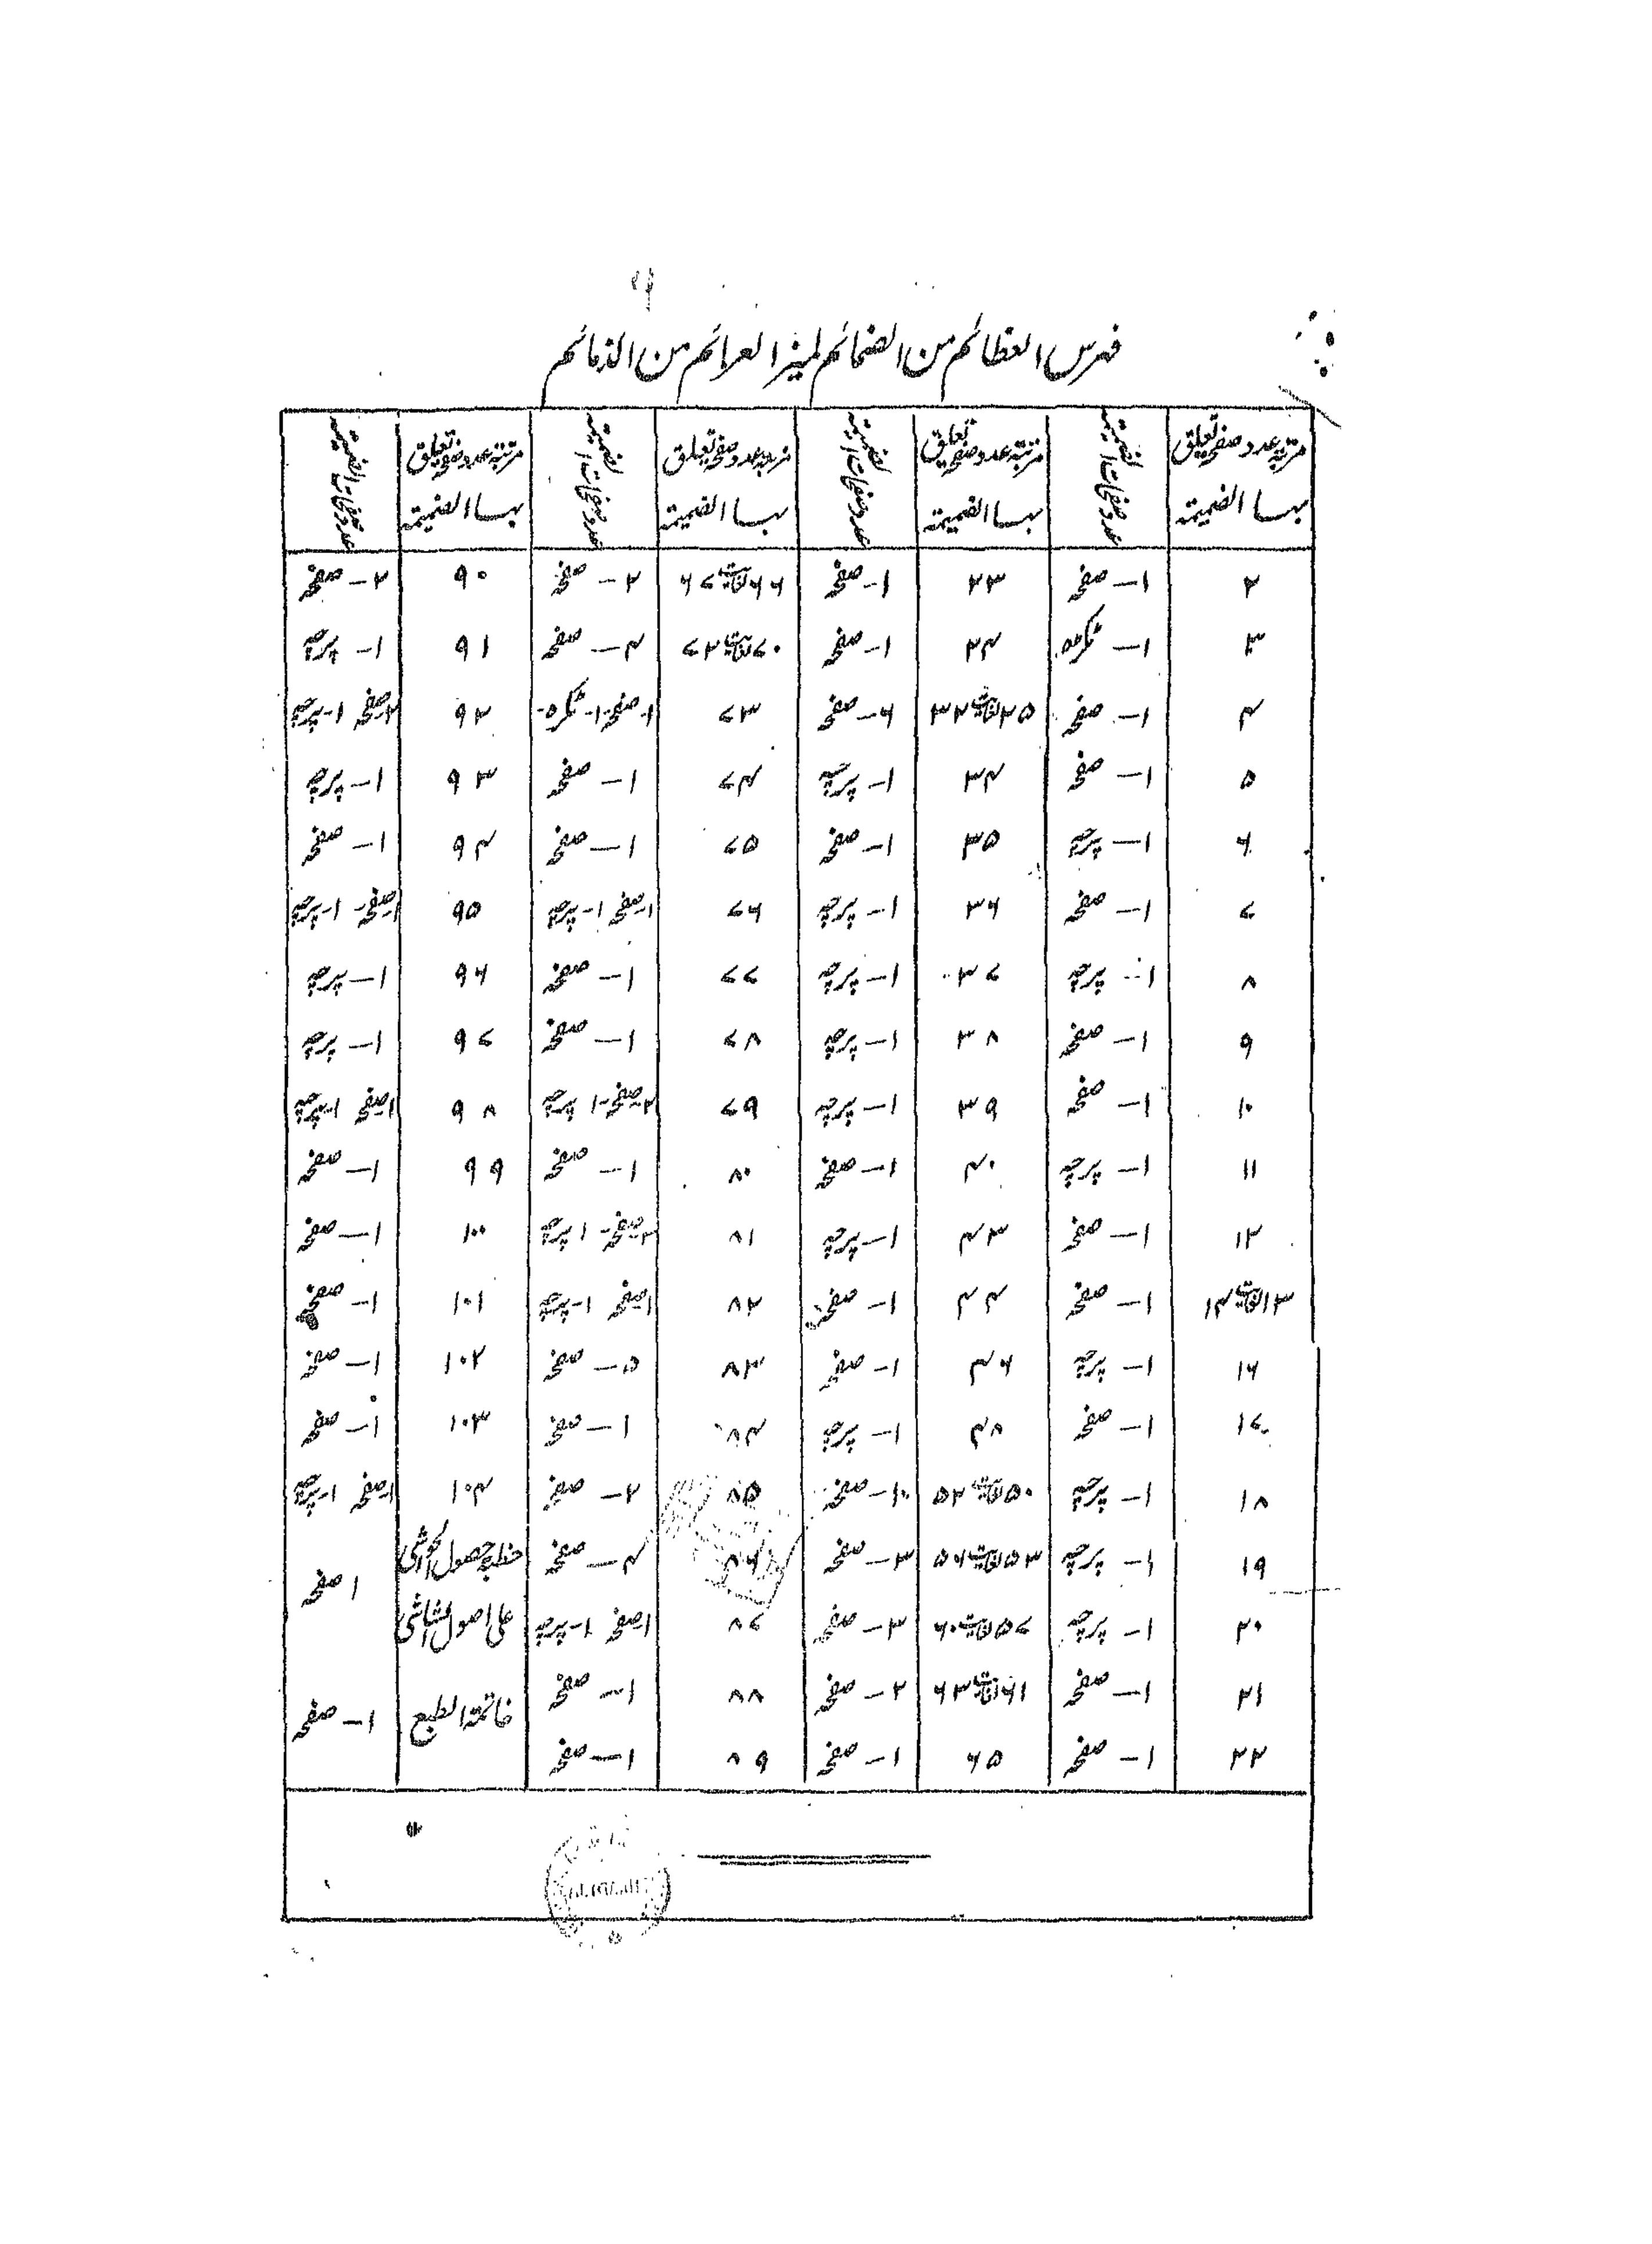 فهرس العظائم من الضمائم لميز العرائم من الذمائم
مرتبة عدد صفحة تعلق بها الضميمة | عدد صفحات الضميمة | مرتبة عدد صفحة تعلق بها الضميمة | عدد صفحات الضميمة | مرتبة عدد صفحة تعلق بها الضميمة | عدد صفحات الضميمة | مرتبة عدد صفحة تعلق بها الضميمة | عدد صفحات الضميمة
۲ | ۱ – صفحہ | ۲۳ | ۱ – صفحہ | ۶۶ لغایت ۶۷ | ۲ – صفحہ | ۹۰ | ۲ – صفحہ
۳ | ۱ – ٹکڑہ | ۲۴ | ۱ – صفحہ | ۷۰ لغایت ۷۲ | ۴ – صفحہ | ۹۱ | ۱ – پرچہ
۴ | ۱ – صفحہ | ۲۵ لغایت ۳۲ | ۶ – صفحہ | ۷۳ | ۱ – صفحہ – ۱ – ٹکڑہ | ۹۲ | ۲ صفحہ ۱ – پرچہ
۵ | ۱ – صفحہ | ۳۴ | ۱ – پرچہ | ۷۴ | ۱ – صفحہ | ۹۳ | ۱ – پرچہ
۶ | ۱ – پرچہ | ۳۵ | ۱ – صفحہ | ۷۵ | ۱ – صفحہ | ۹۴ | ۱ – صفحہ
۷ | ۱ – صفحہ | ۳۶ | ۱ – پرچہ | ۷۶ | ۱ صفحہ ۱ – پرچہ | ۹۵ | ۱ صفحہ – ۱ – پرچہ
۸ | ۱ – پرچہ | ۳۷ | ۱ – پرچہ | ۷۷ | ۱ – صفحہ | ۹۶ | ۱ – پرچہ
۹ | ۱ – صفحہ | ۳۸ | ۱ – پرچہ | ۷۸ | ۱ – صفحہ | ۹۷ | ۱ – پرچہ
۱۰ | ۱ – صفحہ | ۳۹ | ۱ – پرچہ | ۷۹ | ۲ صفحہ – ۱ پرچہ | ۹۸ | ۱ صفحہ ۱ – پرچہ
۱۱ | ۱ – پرچہ | ۴۰ | ۱ – صفحہ | ۸۰ | ۱ – صفحہ | ۹۹ | ۱ – صفحہ
۱۲ | ۱ – صفحہ | ۴۳ | ۱ – پرچہ | ۸۱ | ۲ صفحہ – ۱ پرچہ | ۱۰۰ | ۱ – صفحہ
۱۳ لغایت ۱۴ | ۱ – صفحہ | ۴۴ | ۱ – صفحہ | ۸۲ | ۱ صفحہ ۱ – پرچہ | ۱۰۱ | ۱ – صفحہ
۱۶ | ۱ – پرچہ | ۴۶ | ۱ – صفحہ | ۸۳ | ۵ – صفحہ | ۱۰۲ | ۱ – صفحہ
۱۷ | ۱ – صفحہ | ۴۸ | ۱ – پرچہ | ۸۴ | ۱ – صفحہ | ۱۰۳ | ۱ – صفحہ
۱۸ | ۱ – پرچہ | ۵۰ لغایت ۵۲ | ۱۰ – صفحہ | ۸۵ | ۲ – صفحہ | ۱۰۴ | ۱ صفحہ ۱ – پرچہ
۱۹ | ۱ – پرچہ | ۵۳ لغایت ۵۶ | ۳ – صفحہ | ۸۶ | ۴ – صفحہ | خطبہ حصول الحواشی | ۱ صفحہ
۲۰ | ۱ – پرچہ | ۵۷ لغایت ۶۰ | ۳ – صفحہ | ۸۷ | ۱ صفحہ ۱ – پرچہ | علی اصول الشاشی
۲۱ | ۱ – صفحہ | ۶۱ لغایت ۶۳ | ۲ – صفحہ | ۸۸ | ۱ – صفحہ | خاتمة الطبع | ۱ – صفحہ
۲۲ | ۱ – صفحہ | ۶۵ | ۱ – صفحہ | ۸۹ | ۱ – صفحہ